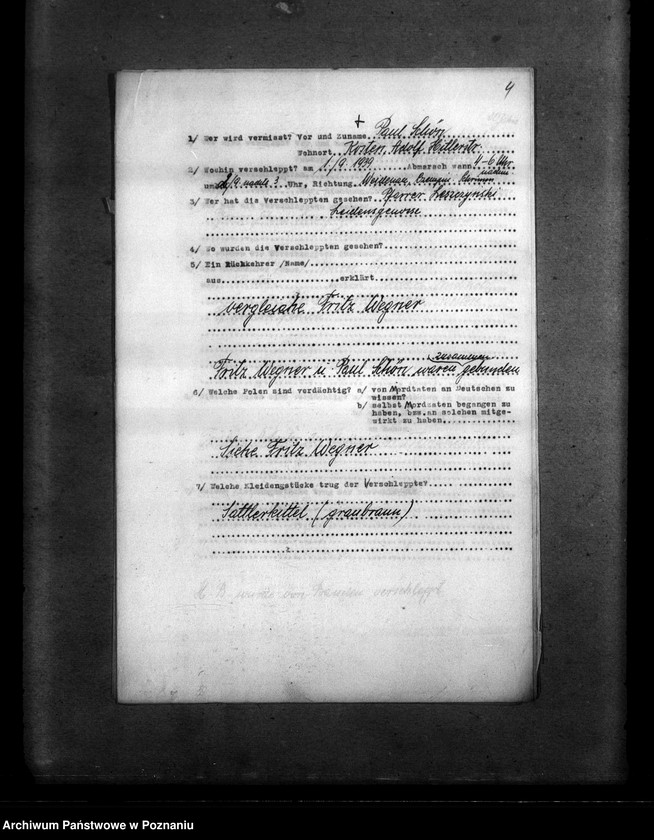 4
+
1/ Wer wird vermisst? Vor und Zuname Paul Schön
Wohnort Kosten, Adolf Hitlerstr.
2/ Wohin verschleppt? am 1./9. 1939 Abmarsch wann 4-6 Uhr
nachm
und 2/9. nachts 3 Uhr, Richtung
3/ Wer hat die Verschleppten gesehen? Pfarrer Leszczynski
Leidensgenosse
4/ Wo wurden die Verschleppten gesehen?
5/ Ein Rückkehrer /Name/
aus erklärt
vergleiche Fritz Wegner
zusammen
Fritz Wegner u. Paul Schön waren gebunden
6/ Welche Polen sind verdächtig? a/ von Mordtaten an Deutschen zu
wissen?
b/ selbst Mordtaten begangen zu
haben, bzw. an solchen mitge-
wirkt zu haben.
Siehe Fritz Wegner
7/ Welche Kleidungstücke trug der Verschleppte?
Sattlerkittel (graubraun)
wurde von verschleppt
Archiwum Państwowe w Poznaniu